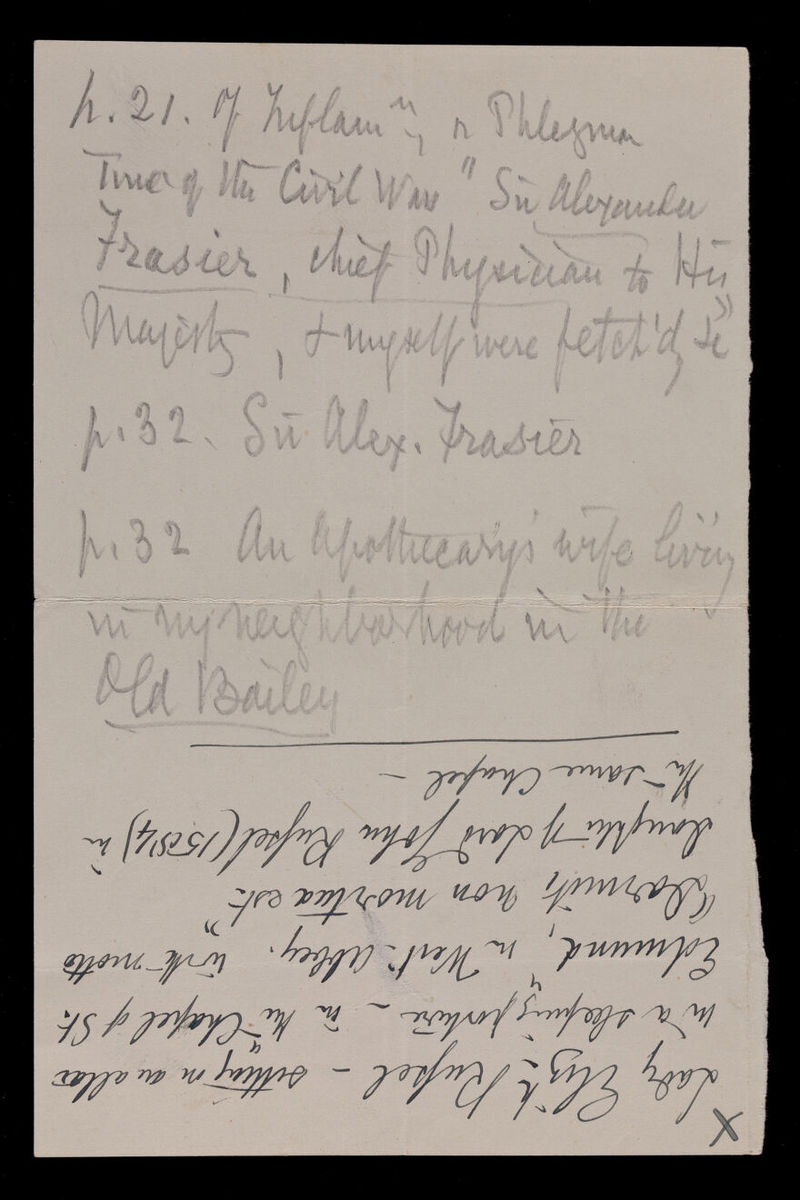 p. 21. Of Inflamn, or Phlegmon
Time of the Civil Wars " Sir Alexander
Frasier, chief Physician to His
Majesty, & myself were fetch'd, &c"
p. 32. Sir Alex. Frasier
p. 32 An Apothecary's wife living
in my neighborhood in the
Old Bailey
X
Lady Elizth Russel – sitting on an altar
in a sleeping posture – in the Chapel of St.
Edmund, in West: Abbey. with motto
"Dormit, non mortua est"
daughter of Lord John Russel (1584) in
the same Chapel –